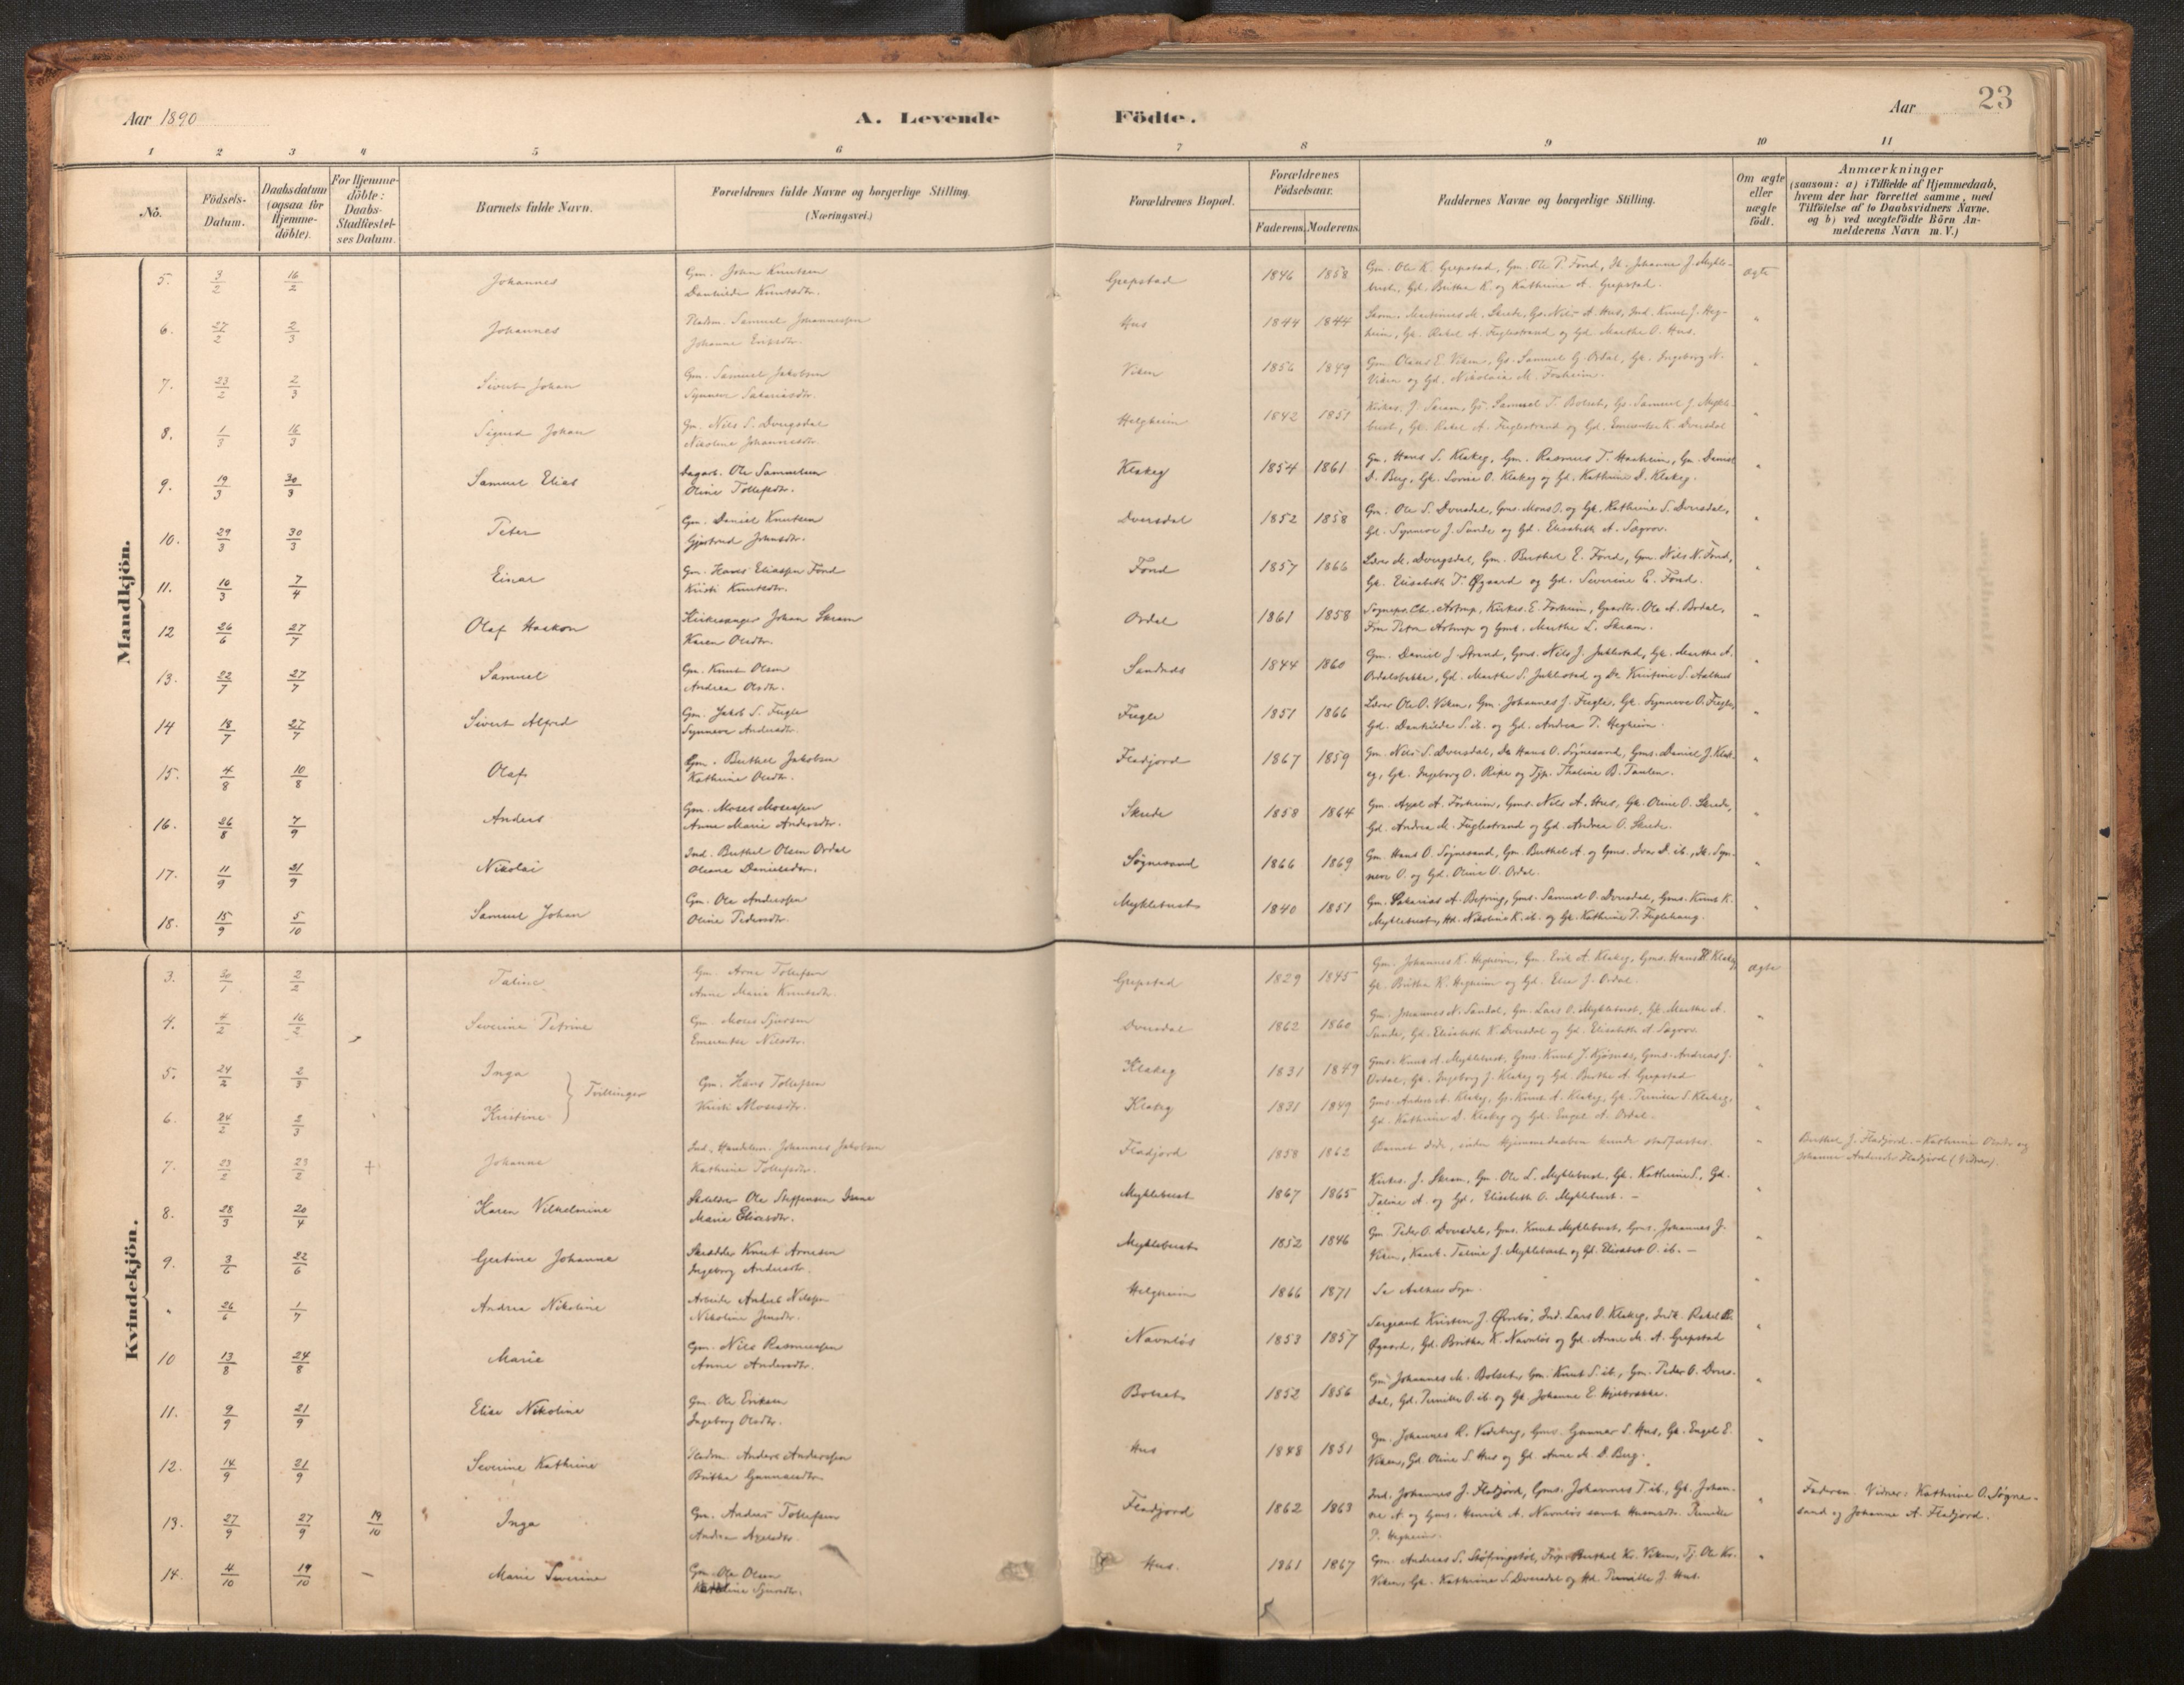 Aar 1890
A. Levende Födte.
Aar
23
1 2 3 4 5 6 7 8 9 10 11
No.
Födsels-Datum.
Daabsdatum (ogsaa for Hjemme-döbte).
For Hjemme-döbte: Daabs-Stadfæstel-ses Datum.
Barnets fulde Navn.
Forældrenes fulde Navne og borgerlige Stilling. (Næringsvei.)
Forældrenes Bopæl.
Forældrenes Födselsaar.
Faderens. Moderens.
Faddernes Navne og borgerlige Stilling.
Om ægte eller uægte födt.
Anmærkninger
(saasom: a) i Tilfælde af Hjemmedaab, hvem der har forrettet samme, med Tilföielse af to Daabsvidners Navne, og b) ved uægtefödte Börn Anmelderens Navn m. V.)
Mandkjön.
5. 3/2 16/2 Johannes Gm. John Knutsen Grepstad 1846 1858 Gm. Ole K. Grepstad, Gm. Ole P. Fond, H. Johanne J. Mykle- ægte
Danhilde Knutsdtr. bust, Gd. Brithe K. og Kathrine A. Grepstad.
6. 27/2 2/3 Johannes Pladsm. Samuel Johannessen Hus 1844 1844 Martinus M. Skrede, Gs. Nils A. Hus, Ind. Knut J. Heg- "
Johanne Eriksdtr. heim, Gk. Rakel A. Fuglestrand og Gd. Marthe O. Hus.
7. 23/2 2/3 Sivert Johan Gm. Samuel Jakobsen Viken 1856 1849 Gm. Olaus E. Viken, Gs. Samuel G. Ordal, Gk. Ingeborg N. "
Synneve Sakariasdtr. Viken og Gd. Nikolaia M. Forheim.
8. 1/3 16/3 Sigurd Johan Gm. Nils S. Dvergsdal Helgheim 1842 1851 Kirkes. J. Skram, Gs. Samuel T. Bolset, Gs. Samuel J. Mykle- "
Nikoline Johannesdtr. bust, Gk. Rakel A. Fuglestrand og Gd. Emerentse K. Dversdal
9. 19/3 30/3 Samuel Elias Dagarb. Ole Samuelsen Klakeg 1854 1861 Gm. Hans S. Klakeg, Gm. Rasmus T. Haaheim, Gm. Daniel "
Oline Tollefsdtr. D. Berg, Gk. Lovise O. Klakeg og Gd. Kathrine D. Klakeg.
10. 29/3 30/3 Peter Gm. Daniel Knutsen Dversdal 1852 1858 Gm. Ole S. Dversdal, Gms. Mons O. og Gk. Kathrine S. Dversdal, "
Gjertrud Johnsdtr. Gd. Synneve J. Sunde og Gd. Elisabeth A. Sægrov.
11. 10/3 7/4 Einar Gm. Hans Eliassen Fond Fond 1857 1866 Lærer M. Dvergsdal, Gm. Berthel E. Fond, Gm. Nils N. Fond, "
Kristi Knutsdtr. Gk. Elisabeth T. Øgaard og Gd. Severine E. Fond.
12 26/6 27/7 Olaf Haakon Kirkesanger Johan Skram Ordal 1861 1858 Sognepr. Chr. Astrup, Kirkes. E. Forheim, Gaardbr. Ole A. Bødal, "
Karen Olsdtr. Fru Petra Astrup og Gmd. Marthe L. Skram.
13. 22/7 27/7 Samuel Gm. Knut Olsen Sandnes 1844 1860 Gm. Daniel J. Strand, Gms. Nils J. Juklestad, Gk. Marthe A. "
Andrea Olsdtr. Ordalsbakke, Gd. Marthe S. Juklestad og Dr. Kristine S. Aalhus
14 18/7 27/7 Sivert Alfred Gm. Jakob S. Fugle Fugle 1851 1866 Lærer Ole O. Viken, Gm. Johannes J. Fugle, Gk. Synneve O. Fugle, "
Synneve Andersdtr. Gd. Danhilde S. ib. og Gd. Andrea T. Hegheim.
15. 4/8 10/8 Olaf Gm. Berthel Jakobsen Fladjord 1867 1859 Gm. Nils S. Dversdal, Dr. Hans O. Søgnesand, Gms. Daniel J. Klak- "
Kathrine Olsdtr. eg, Gk. Ingeborg O. Ripe og Tjp. Thaline B. Taulen.
16. 26/8 7/9 Anders Gm. Moses Mosessen Skrede 1858 1864 Gm. Axel A. Forheim, Gms. Nils A. Hus, Gk. Oline O. Skrede, "
Anne Marie Andersdtr. Gd. Andrea M. Fuglestrand og Gd. Andrea O. Skrede.
17. 11/9 21/9 Nikolai Ind. Berthel Olsen Ordal Søgnesand 1866 1869 Gm. Hans O. Søgnesand, Gm. Berthel A. og Gms. Ivar D. ib., H. Syn- "
Oleane Danielsdtr. neve O. og Gd. Oline O. Ordal.
18. 15/9 5/10 Samuel Johan Gm. Ole Anderssen Myklebust 1840 1851 Gm. Sakarias A. Befring, Gms. Samuel O. Dvesdal, Gms. Knut K. "
Oline Pedersdtr. Myklebust, Hd. Nikoline K. ib. og Gk. Kathrine P. Fuglehaug.
Kvindekjön.
3. 30/1 2/2 Taline Gm. Arne Tollefsen Grepstad 1829 1845 Gm. Johannes K. Hegheim, Gm. Erik A. Klakeg, Gms. Hans H. Klakeg ægte
Anne Marie Knutsdtr. Gk. Brithe K. Hegheim og Gd. Else J. Ordal.
4. 4/2 16/2 Severine Petrine Gm. Moses Sjursen Dvesdal 1862 1860 Gm. Johannes N. Sandal, Gm. Lars O. Myklebust, Gk. Marthe A. "
Emerentse Nilsdtr. Sunde, Gd. Elisabeth K. Dvesdal og Gd. Elisabeth A. Sægrov.
5. 24/2 2/3 Inga Tvillinger Gm. Hans Tollefsen Klakeg 1831 1849 Gms. Knut A. Myklebust, Gms. Knut J. Kjøsnes, Gms. Andreas J. "
Ordal, Gk. Ingeborg J. Klakeg og Gd. Berthe A. Grepstad
6. 24/2 2/3 Kristine Kristi Mosesdtr. Klakeg 1831 1849 Gms. Anders A. Klakeg, Gs. Knut A. Klakeg, Gk. Pernille S. Klakeg, "
Gd. Kathrine D. Klakeg og Gd. Engel A. Ordal.
7. 23/2 23/2 + Johanne Ind., Handelsm. Johannes Jakobsen Fladjord 1858 1862 Barnet døde, inden Hjemmedaaben kunde stadfæstes. " Berthel J. Fladjord. - Kathrine Olsdtr og
Kathrine Tollefsdtr. Johanne Andersdtr Fladjord (Vidner).
8. 28/3 20/4 Karen Vilhelmine Ole Steffensen Myklebust 1867 1865 Kirkes. J. Skram, Gm. Ole L. Myklebust, Gk. Kathrine S., Gd. "
Marie Eliasdtr. Taline A. og Gd. Elisabeth O. Myklebust. -
9. 3/6 22/6 Gertine Johanne Skrædder Knut Arnesen Myklebust 1852 1846 Gm. Peder O. Dvesdal, Gms. Knut Myklebust, Gms. Johannes J. "
Ingeborg Andersdtr. Viken, Taline J. Myklebust og Gd. Elisabet O. ib. -
" 26/6 1/7 Andrea Nikoline Arbeider Anders Nilssen Helgheim 1866 1871 Se Aalhus Sogn. "
Nikoline Jensdtr.
10 13/8 24/8 Marie Gm. Nils Rasmussen Navnløs 1853 1857 Sergeant Kristen J. Ørebø, Ind. Lars O. Klakeg, Indk. Rakel B.
Anne Andersdtr. Øgaard, Gd. Brithe K. Navnløs og Gd. Anne M. A. Grepstad
11. 9/9 21/9 Elise Nikoline Gm. Ole Eriksen Bolset 1852 1856 Gm. Johannes M. Bolset, Gm. Knut S. ib., Gm. Peder O. Dves- "
Ingeborg Olsdtr. dal, Gd. Pernille O. ib. og Gk. Johanne E.
12. 14/9 21/9 Severine Kathrine Pladsm. Anders Anderssen Hus 1848 1851 Gm. Johannes R. Vedebrg, Gms. Gunnar S. Hus, Gk. Engel E. "
Brithe Gunnarsdtr. Viken, Gd. Oline S. Hus og Gd. Anne M. D. Berg.
13. 27/9 27/9 19/10 Inga Gm. Anders Tollefsen Fladjord 1862 1863 Ind. Johannes J. Fladjord, Gms. Johannes T. ib., Gk. Johan- " Faderen. Vidner: Kathrine O. Søgne-
Andrea Axelsdtr. ne A. og Gms. Henrik A. Navnløs samt Husmdtr. Pernille sand og Johanne A. Fladjord.
P. Hegheim.
14. 4/10 19/10 - Marie Severine Gm. Ole Olsen Hus. 1861 1867 Gm. Andreas S. Støfringstøl, Berthel Kr. Viken, Tj. Ole Kr. "
Sjursdtr. Viken, Gk. Kathrine S. Dvesdal og Hd. Pernille J. Hus.